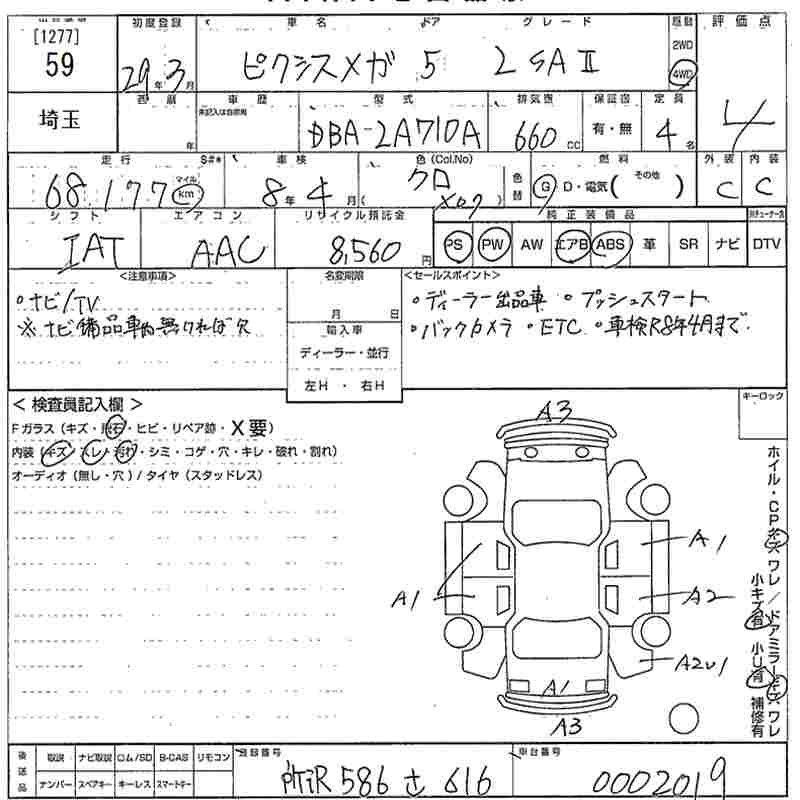 初度登録 車名 ドア グレード 駆動 評価点
[1277]
59 29年 3月 ピクシスメガ 5 L SA Ⅱ 2WD 4WD 4
埼玉 年 車歴 型式 排気量 保証書 定員
未記入は自家用 DBA-LA710A 660cc 有・無 4名
走行 $#* 車検 色(Col.No) 色替 燃料 外装 内装
68,177 マイル km 8年 4月 クロ (X07) G・D・電気( その他 ) C C
シフト エアコン リサイクル預託金 純正装備品
IAT AAC 8,560円 PS PW AW エアB ABS 革 SR ナビ DTV
<注意事項> 名変期限 <セールスポイント>
○ナビ/TV 月 日 ○ディーラー出品車 ○プッシュスタート
※ナビ備品車内無ければ欠 輸入車 ○バックカメラ ○ETC ○車検R8年4月まで
ディーラー・並行
左H ・ 右H
<検査員記入欄> キーロック
Fガラス(キズ・飛石・ヒビ・リペア跡・X要)
内装(キズ・スレ・汚れ・シミ・コゲ・穴・キレ・破れ・割れ)
オーディオ(無し・穴)/タイヤ(スタッドレス)
A3
A1
A1
A2
A2U1
A1
A3
ホイル・CPキズワレ/ドアミラーキズワレ
小キズ有 小U有 補修有
後送品 取説 ナビ取説 ロム/SD B-CAS リモコン 登録番号 車台番号
ナンバー スペアキー キーレス スマートキー 所沢 586 さ 616 0002019